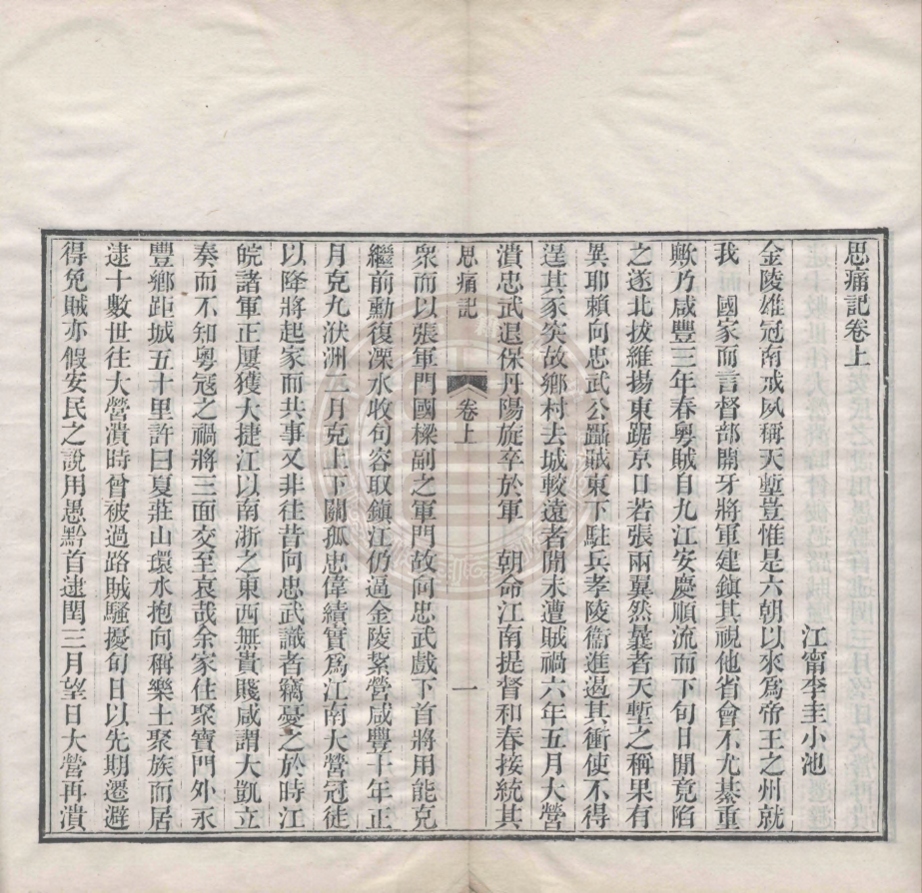 思痛記卷上
江甯李圭小池
金陵雄冠南戒夙稱天塹豈惟是六朝以來爲帝王之州就
我 國家而言督部開牙將軍建鎮其視他省會不尤綦重
歟乃咸豐三年春粤賊自九江安慶順流而下旬日閒竟陷
之遂北拔維揚東踞京口若張兩翼然曩者天塹之稱果有
異耶賴向忠武公躡賊東下駐兵孝陵衞進遏其衝使不得
逞其豕突故鄉村去城較遠者閒未遭賊禍六年五月大營
潰忠武退保丹陽旋卒於軍 朝命江南提督和春接統其
思痛記 卷上 一
衆而以張軍門國樑副之軍門故向忠武戲下首將用能克
繼前勳復溧水收句容取鎭江仍逼金陵紮營咸豐十年正
月克九洑洲三月克上下關孤忠偉績實爲江南大營冠徒
以降將起家而共事又非往昔向忠武識者竊憂之於時江
皖諸軍正屢獲大捷江以南浙之東西無貴賤咸謂大凱立
奏而不知粤寇之禍將三面交至哀哉余家住聚寶門外永
豐鄉距城五十里許曰夏莊山環水抱向稱樂土聚族而居
逮十數世往大營潰時曾被過路賊騷擾旬日以先期遷避
得免賊亦假安民之說用愚黔首逮閏三月望日大營再潰